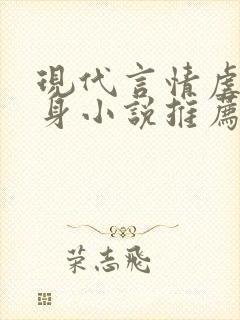 現代言情虐
身小説推薦
荣志飛